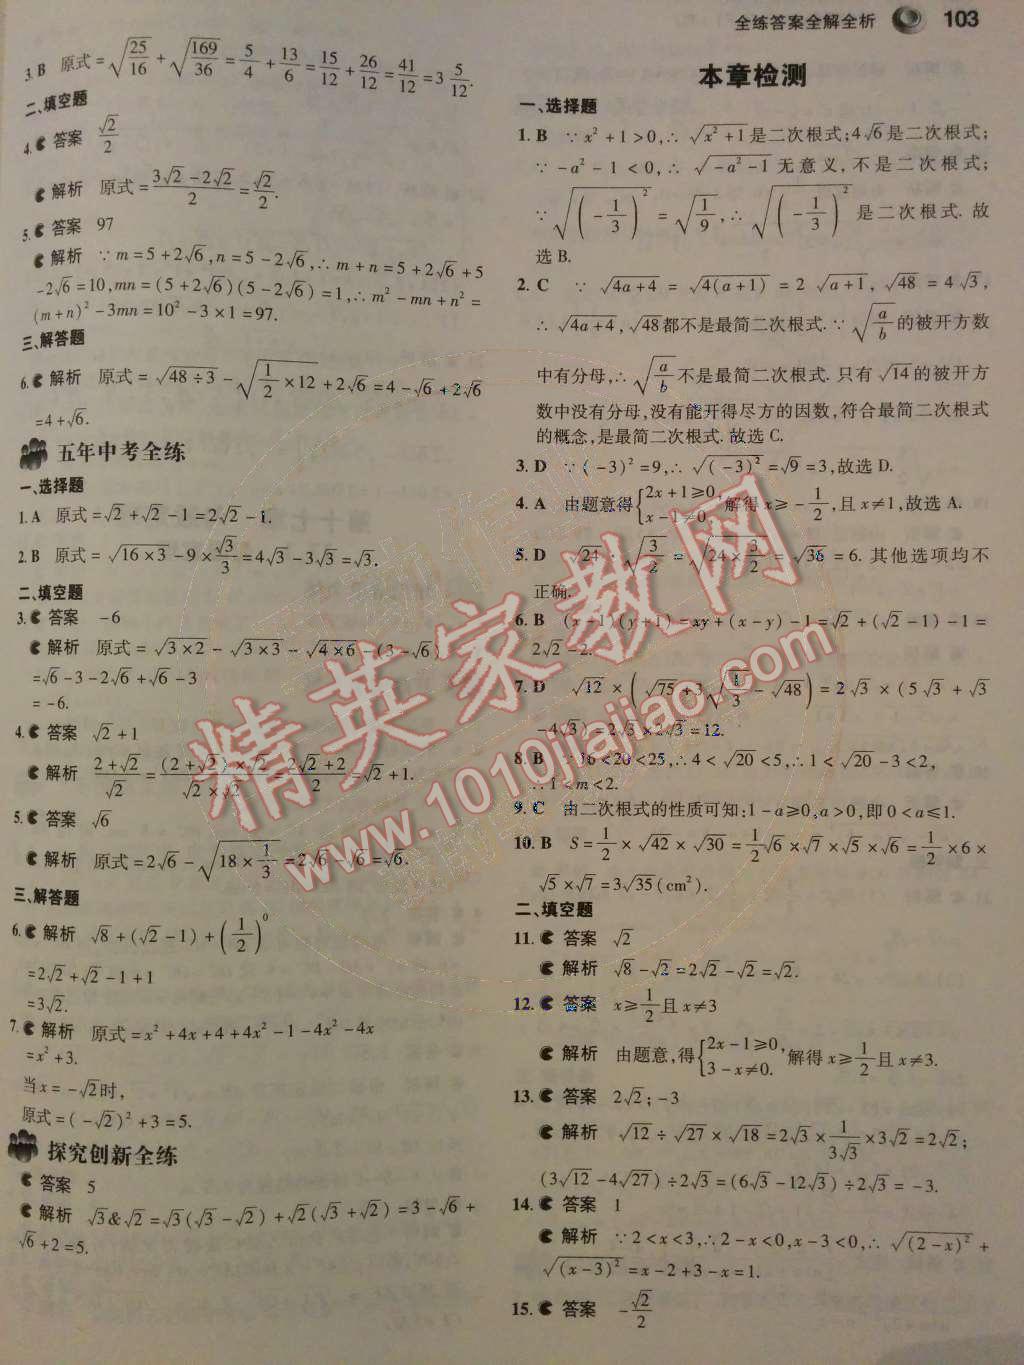 全练答案全解全析 103
3. B 原式=√(25/16)+√(169/36)=5/4+13/6=15/12+26/12=41/12=3 5/12.
二、填空题
4. 答案 √2/2
解析 原式=(3√2-2√2)/2=√2/2.
5. 答案 97
解析 ∵m=5+2√6,n=5-2√6,∴m+n=5+2√6+5
-2√6=10,mn=(5+2√6)(5-2√6)=1,∴m²-mn+n²=
(m+n)²-3mn=10²-3×1=97.
三、解答题
6. 解析 原式=√(48÷3)-√(1/2×12)+2√6=4-√6+2√6
=4+√6.
五年中考全练
一、选择题
1. A 原式=√2+√2-1=2√2-1.
2. B 原式=√(16×3)-9×√3/3=4√3-3√3=√3.
二、填空题
3. 答案 -6
解析 原式=√(3×2)-√(3×3)-√(4×6)-(3-√6)
=√6-3-2√6+√6-3
=-6.
4. 答案 √2+1
解析 (2+√2)/√2=((2+√2)×√2)/(√2×√2)=(2√2+2)/2=√2+1.
5. 答案 √6
解析 原式=2√6-√(18×1/3)=2√6-√6=√6.
三、解答题
6. 解析 √8+(√2-1)+(1/2)⁰
=2√2+√2-1+1
=3√2.
7. 解析 原式=x²+4x+4+4x²-1-4x²-4x
=x²+3.
当x=-√2时,
原式=(-√2)²+3=5.
探究创新全练
答案 5
解析 √3&√2=√3(√3-√2)+√2(√3+√2)=3-√6+
√6+2=5.
本章检测
一、选择题
1. B ∵x²+1>0,∴√(x²+1)是二次根式;4√6是二次根式;
∵-a²-1<0,∴√(-a²-1)无意义,不是二次根式;
∵√((-1/3)²)=√(1/9),∴√((-1/3)²)是二次根式.故
选B.
2. C ∵√(4a+4)=√(4(a+1))=2√(a+1),√48=4√3,
∴√(4a+4),√48都不是最简二次根式.∵√(a/b)的被开方数
中有分母,∴√(a/b)不是最简二次根式.只有√14的被开方
数中没有分母,没有能开得尽方的因数,符合最简二次根式
的概念,是最简二次根式.故选C.
3. D ∵(-3)²=9,∴√((-3)²)=√9=3,故选D.
4. A 由题意得{2x+1≥0, x-1≠0, 解得x≥-1/2,且x≠1,故选A.
5. D √24·√(3/2)=√(24×3/2)=√36=6.其他选项均不
正确.
6. B (x-1)(y+1)=xy+(x-y)-1=√2+(√2-1)-1=
2√2-2.
7. D √12×(√75+3√(1/3)-√48)=2√3×(5√3+√3
-4√3)=2√3×2√3=12.
8. B ∵16<20<25,∴4<√20<5,∴1<√20-3<2,
∴1<m<2.
9. C 由二次根式的性质可知:1-a≥0,a>0,即0<a≤1.
10. B S=1/2×√42×√30=1/2×√6×√7×√5×√6=1/2×6×
√5×√7=3√35(cm²).
二、填空题
11. 答案 √2
解析 √8-√2=2√2-√2=√2.
12. 答案 x≥1/2且x≠3
解析 由题意,得{2x-1≥0, 3-x≠0. 解得x≥1/2且x≠3.
13. 答案 2√2;-3
解析 √12÷√27×√18=2√3×1/(3√3)×3√2=2√2;
(3√12-4√27)÷2√3=(6√3-12√3)÷2√3=-3.
14. 答案 1
解析 ∵2<x<3,∴2-x<0,x-3<0,∴√((2-x)²)+
√((x-3)²)=x-2+3-x=1.
15. 答案 -√2/2
精英家教网
www.1010jiajiao.com